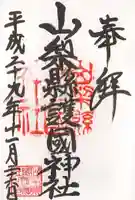 奉拝
山梨縣護國神社
平成二十九年十一月三日